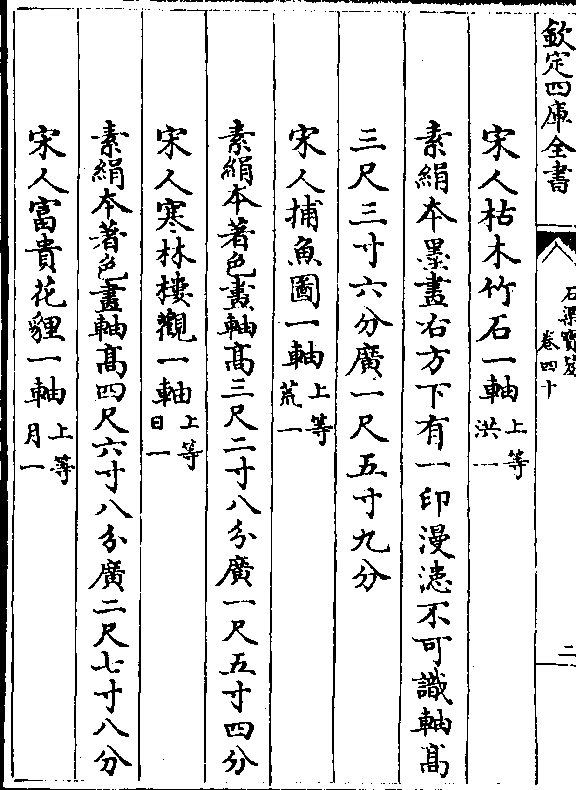 欽定四庫全書
石渠寶笈
卷四十
二
宋人枯木竹石一軸上等洪一
素絹本墨畫右方下有一印漫漶不可識軸高
三尺三寸六分廣一尺五寸九分
宋人捕魚圖一軸上等荒一
素絹本著色畫軸高三尺二寸八分廣一尺五寸四分
宋人寒林樓觀一軸上等日一
素絹本著色畫軸高四尺六寸八分廣二尺七寸八分
宋人富貴花貍一軸上等月一